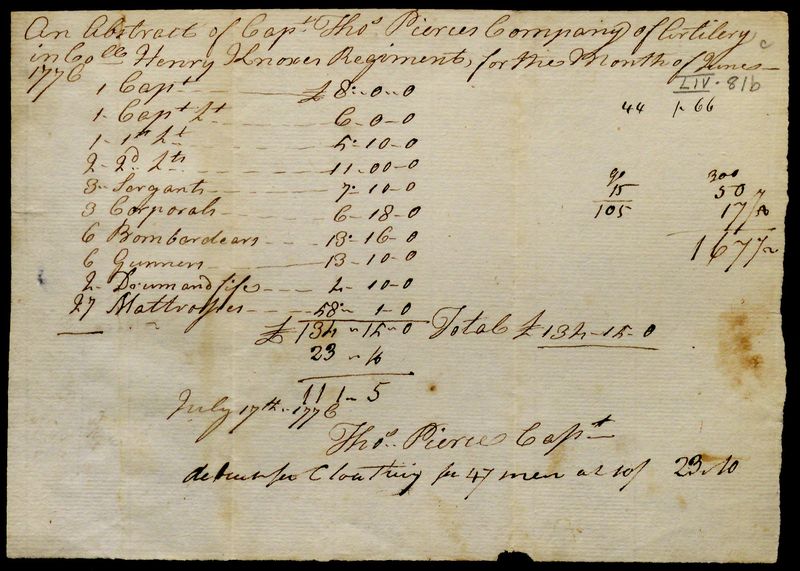 An Abstract of Capt Thos Pierces Company of Artilery
in Collo Henry Knoxes Regiment, for the Month of June
1776
LIV. 81b
1 Capt £ 8"-0-0
1- Capt Lt 6-0-0
44
66
1- 1st Lt 5-10-0
2- 2d Lts 11-00-0
3- Sergants 7"-10-0
90 300
3 Corporals 6-18-0
15 50
105 17/
6 Bombardears 13"-16-0
167/
6 Gunners 13-10-0
2- Drum and fife 4-10-0
27 Mattrosses 58"-1-0
£ 134"-15-0 Total £ 134-15-0
23"10
111"5
July 17th-1776
Thos Pierce Capt
deduct for Cloathing for 47 men at 10/ 23"10